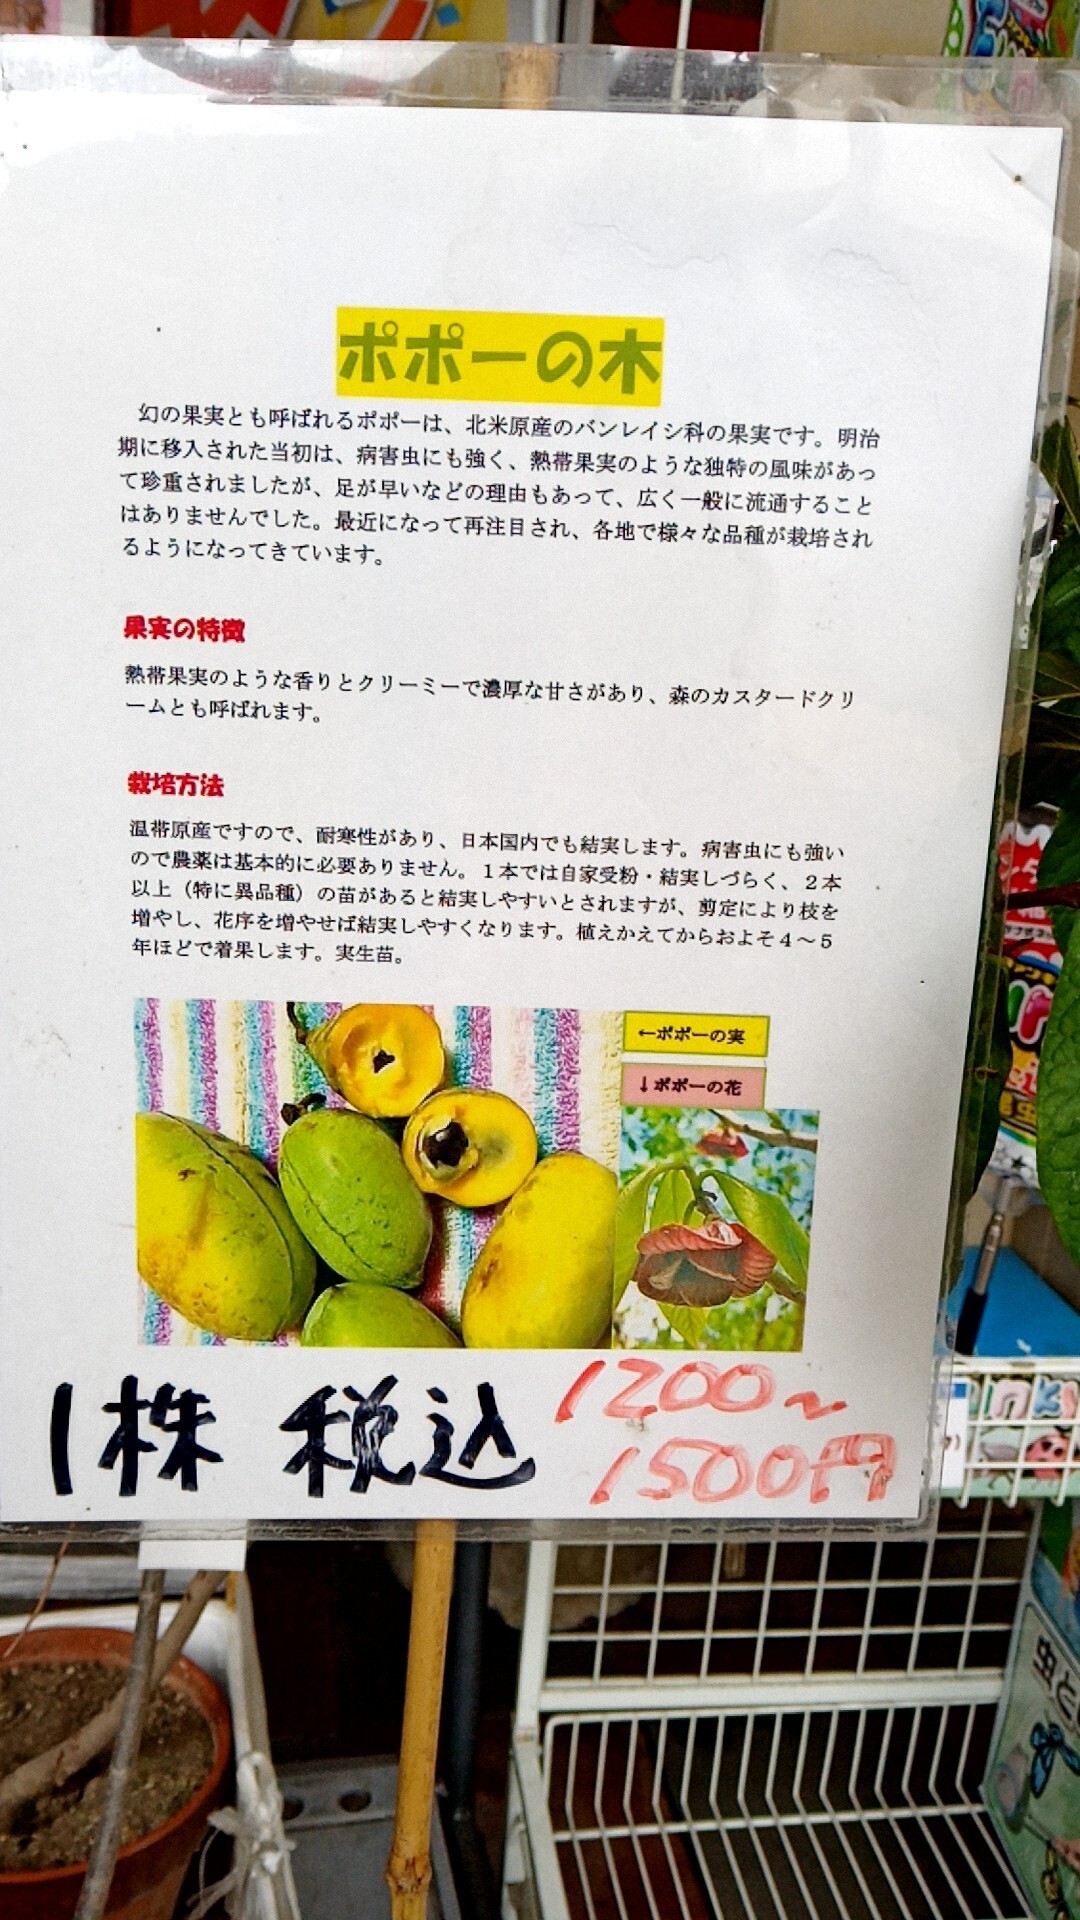 ポポーの木
幻の果実とも呼ばれるポポーは、北米原産のバンレイシ科の果実です。明治
期に移入された当初は、病害虫にも強く、熱帯果実のような独特の風味があっ
て珍重されましたが、足が早いなどの理由もあって、広く一般に流通すること
はありませんでした。最近になって再注目され、各地で様々な品種が栽培され
るようになってきています。
果実の特徴
熱帯果実のような香りとクリーミーで濃厚な甘さがあり、森のカスタードクリ
ームとも呼ばれます。
栽培方法
温帯原産ですので、耐寒性があり、日本国内でも結実します。病害虫にも強い
ので農薬は基本的に必要ありません。１本では自家受粉・結実しづらく、２本
以上（特に異品種）の苗があると結実しやすいとされますが、剪定により枝を
増やし、花序を増やせば結実しやすくなります。植えかえてからおよそ４～５
年ほどで着果します。実生苗。
←ポポーの実
↓ポポーの花
1株 税込 1200~
1500円
虫と